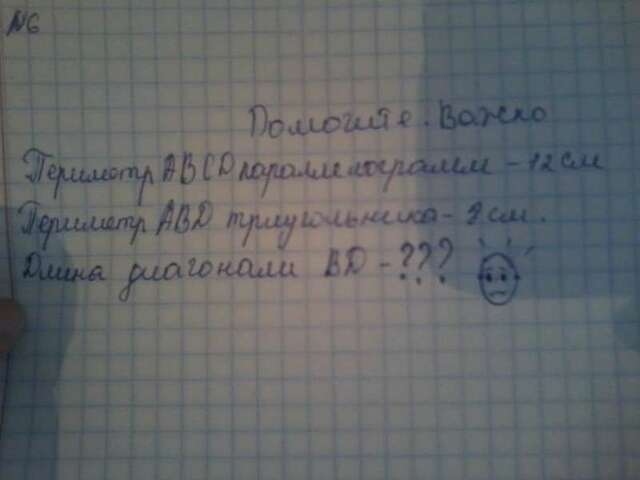 №6
Помогите. Важно
Периметр ABCD параллелограмм - 12 см
Периметр ABD триугольника - 9 см.
Длина диагонали BD - ???